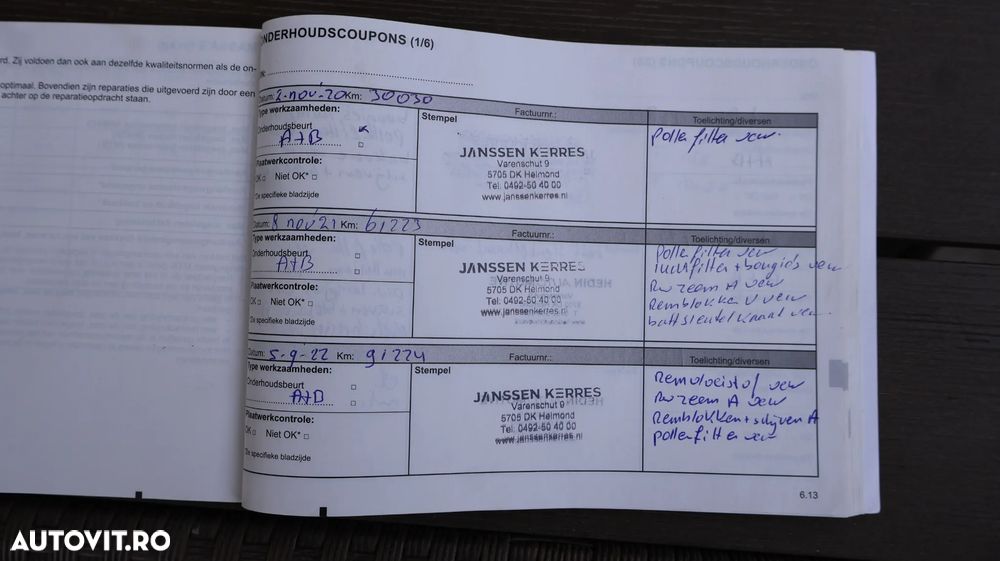 ONDERHOUDSCOUPONS (1/6)
rd. Zij voldoen dan ook aan dezelfde kwaliteitsnormen als de on-
optimaal. Bovendien zijn reparaties die uitgevoerd zijn door een
achter op de reparatieopdracht staan.
Datum: 2-nov-20 Km: 30030
Factuurnr.:
Toelichting/diversen
Type werkzaamheden:
Stempel
Onderhoudsbeurt
A+B
Plaatwerkcontrole:
OK □ Niet OK* □
*De specifieke bladzijde
JANSSEN KERRES
Varenschut 9
5705 DK Helmond
Tel: 0492-50 40 00
www.janssenkerres.nl
Pollenfilter verv.
Datum: 8 nov 21 Km: 61223
Factuurnr.:
Toelichting/diversen
Type werkzaamheden:
Stempel
Onderhoudsbeurt
A+B
Plaatwerkcontrole:
OK □ Niet OK* □
*De specifieke bladzijde
JANSSEN KERRES
Varenschut 9
5705 DK Helmond
Tel: 0492-50 40 00
www.janssenkerres.nl
Pollenfilter verv
luchtfilter + bougie's verv
Rw zeem A verv
Remblokken V verv
batt sleutelkaart verv
Datum: 5-9-22 Km: 91224
Factuurnr.:
Toelichting/diversen
Type werkzaamheden:
Stempel
Onderhoudsbeurt
A+B
Plaatwerkcontrole:
OK □ Niet OK* □
*De specifieke bladzijde
JANSSEN KERRES
Varenschut 9
5705 DK Helmond
Tel: 0492-50 40 00
www.janssenkerres.nl
Remvloeistof verv
Rw zeem A verv
Remblokken + schijven A
pollenfilter verv
6.13
AUTOVIT.RO